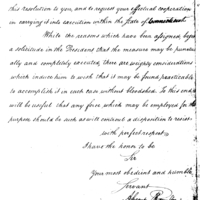 this resolution to you, and to request your effectual cooperation
in carrying it into execution within the State of
While the reasons which have been assigned, beget
a solicitude in the President that the measure may be punctu
ally and completely executed, there are urgent considerations
which induce him to wish that it may be found practicable
to accomplish it in each case without bloodshed. To this end it
will be useful that any force which may be employed for the
purpose should be such as will controul a disposition to resist.
with perfect respect
I have the honor to be
Sir
Your most obedient and humble
Servant